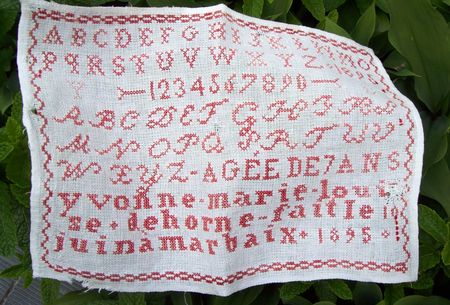 ABCDEFGHIJKLMNO
PQRSTUVWXYZ
1234567890
ABCDEFGHIJK
MNOPQRSTUV
WXYZ-AGÉE DE 7 ANS
yvonne-marie-loui
ze+dehorne-faitle
juinamarbaix+1895+